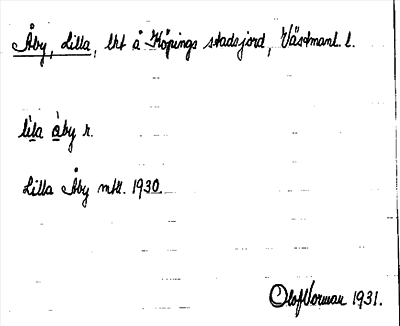 Åby, Lilla, lht å Köpings stadsjord, Västmanl. l.
lìla àby r.
Lilla Åby mtl. 1930.
Olof Norman 1931.